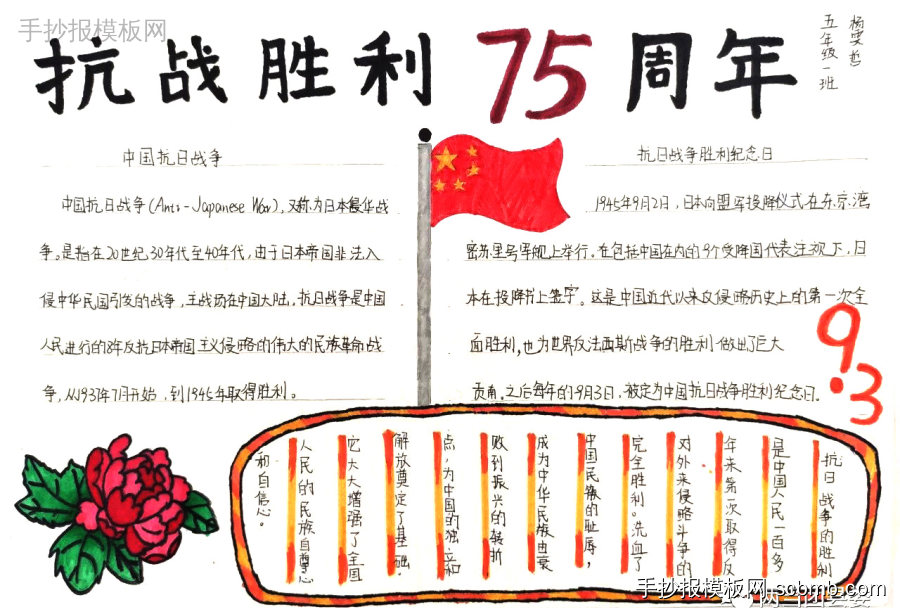 手抄报模板网
抗战胜利75周年
杨雯哲
五年级一班
中国抗日战争
中国抗日战争(Anti-Japanese War),又称为日本侵华战
争。是指在20世纪30年代至40年代,由于日本帝国非法入
侵中华民国引发的战争,主战场在中国大陆,抗日战争是中国
人民进行的8年反抗日本帝国主义侵略的伟大的民族革命战
争,从1937年7月开始,到1945年取得胜利。
抗日战争胜利纪念日
1945年9月2日,日本向盟军投降仪式在东京湾
密苏里号军舰上举行。在包括中国在内的9个受降国代表注视下,日
本在投降书上签字。这是中国近代以来反侵略历史上的第一次全
面胜利,也为世界反法西斯战争的胜利做出了巨大
贡献。之后每年的9月3日,被定为中国抗日战争胜利纪念日。
9.3
抗日战争的胜利
是中国人民一百多
年来第一次取得反
对外来侵略斗争的
完全胜利。洗血了
中国民族的耻辱,
成为中华民族由衰
败到振兴的转折
点,为中国的独立和
解放奠定了基础。
它大大增强了全国
人民的民族自尊心
和自信心。
手抄报模板网 scbmb.com